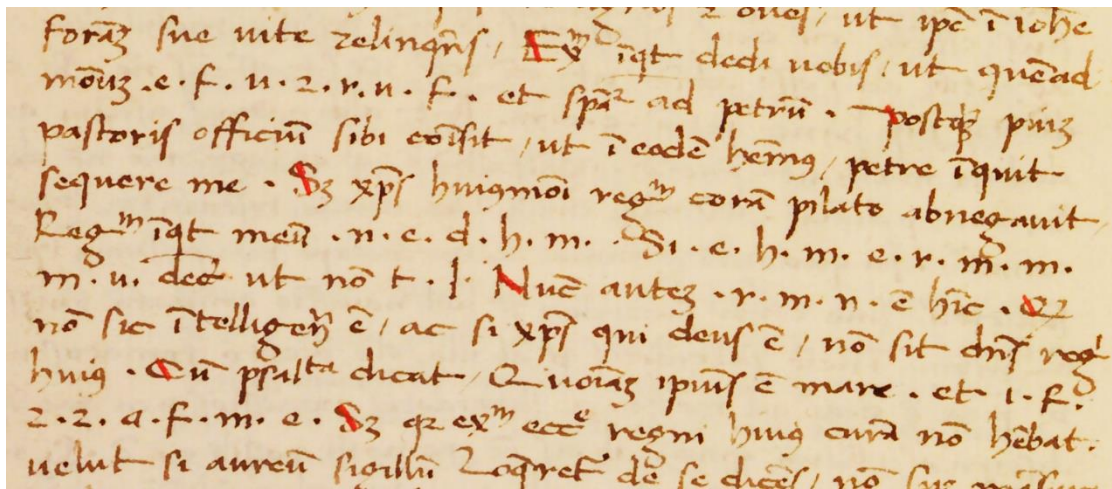 oues, ut ip̄e ī ioh̄e
formāꝫ sue uite relinqn̄s, Exᵐ īqt dedi uobis, ut quēad
moduꝫ .e. f. u. 2. r. u. f. et sp̄a͛ ad petrū . Postq̄ꝫ
pastoris officiuꝫ sibi cōīsit, ut ī eodē hēmꝰ, petre īquit
sequere me . Sꝫ xp̄s huiꝰmōi regᵐ corā pilato abnegauit,
Regᵐ īqt meū .n. e. d. h. m. Si . e. h. m. e. r. m̄. m.
m. u. dec̄ ut nō t. l. Nūc auteꝫ .r. m. n. ē hīc . Qꝛ
nō sic ītelligēn̄ ē, ac si xp̄s qui deus ē, nō sit dn̄s reg
huiꝰ . Cū psal̄ᵗᵃ dicat, Quoīaꝫ ipiuſ ē mare . et i. f.
2. 2. a. f. m. e. Sꝫ qꝛ exᵐ ecc̄ᵉ regni huiꝰ curā nō hēbat.
uelut si aureū sigillū loq̄ret͛ de se dicēs, nō